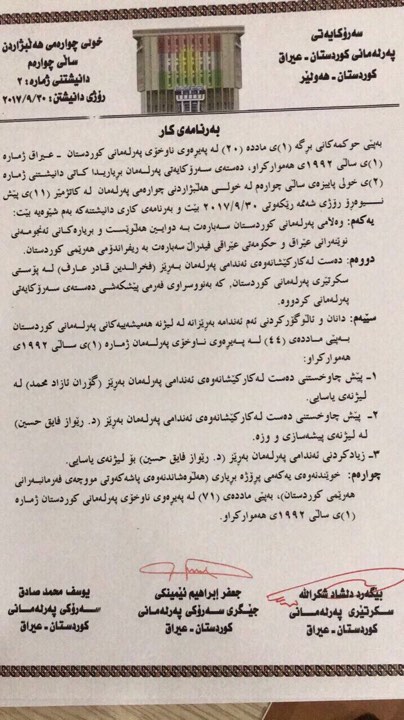 سەرۆکایەتی
پەرلەمانی کوردستان - عیراق
کوردستان - هەولێر
خولی چوارەمی هەڵبژاردن
ساڵی چوارەم
دانیشتنی ژمارە: ٢
رۆژی دانیشتن: ٢٠١٧/٩/٣٠
بەرنامەی کار
بەپێی حوکمەکانی بڕگە (١)ی ماددە (٢٠) لە پەیڕەوی ناوخۆی پەرلەمانی کوردستان - عیراق ژمارە
(١)ی ساڵی ١٩٩٢ی هەموارکراو، دەستەی سەرۆکایەتی پەرلەمان بڕیاریدا کاتی دانیشتنی ژمارە
(٢)ی خولی پاییزەی ساڵی چوارەم لە خولی هەڵبژاردنی چوارەمی پەرلەمان لە کاتژمێر (١١)ی پێش
نیوەڕۆ رۆژی شەممە رێکەوتی ٢٠١٧/٩/٣٠ بێت و بەرنامەی کاری دانیشتنەکە بەم شێوەیە بێت:
یەکەم: وەڵامی پەرلەمانی کوردستان سەبارەت بە دوایین هەڵوێست و بڕیارەکانی ئەنجومەنی
نوێنەرانی عێراق و حکومەتی عێراقی فیدراڵ سەبارەت بە ریفراندۆمی هەرێمی کوردستان.
دووەم: دەست لەکارکێشانەوەی ئەندامی پەرلەمان بەڕێز (فخرالدین قادر عارف) لە پۆستی
سکرتێری پەرلەمانی کوردستان، کە بەنووسراوی فەرمی پێشکەشی دەستەی سەرۆکایەتی
پەرلەمانی کردووە.
سێیەم: دانان و ئاڵوگۆڕکردنی ئەم ئەندامە بەڕێزانە لە لیژنە هەمیشەییەکانی پەرلەمانی کوردستان
بەپێی ماددەی (٤٤) لە پەیڕەوی ناوخۆی پەرلەمان ژمارە (١)ی ساڵی ١٩٩٢ی
هەموارکراو:
١- پێش چاوخستنی دەست لەکارکێشانەوەی ئەندامی پەرلەمان بەڕێز (گۆران ئازاد محمد) لە
لیژنەی یاسایی.
٢- پێش چاوخستنی دەست لەکارکێشانەوەی ئەندامی پەرلەمان بەڕێز (د. رێواز فایق حسین)
لە لیژنەی پیشەسازی و وزە.
٣- زیادکردنی ئەندامی پەرلەمان بەڕێز (د. رێواز فایق حسین) بۆ لیژنەی یاسایی.
چوارەم: خوێندنەوەی یەکەمی پڕۆژە بڕیاری (هەڵوەشاندنەوەی پاشەکەوتی مووچەی فەرمانبەرانی
هەرێمی کوردستان)، بەپێی ماددەی (٧١) لە پەیڕەوی ناوخۆی پەرلەمانی کوردستان ژمارە
(١)ی ساڵی ١٩٩٢ی هەموارکراو.
بێگەرد دلشاد شکراللە
سکرتێری پەرلەمانی
کوردستان - عیراق
جعفر إبراهیم ئێمینکی
جێگری سەرۆکی پەرلەمانی
کوردستان - عیراق
یوسف محمد صادق
سەرۆکی پەرلەمانی
کوردستان - عیراق